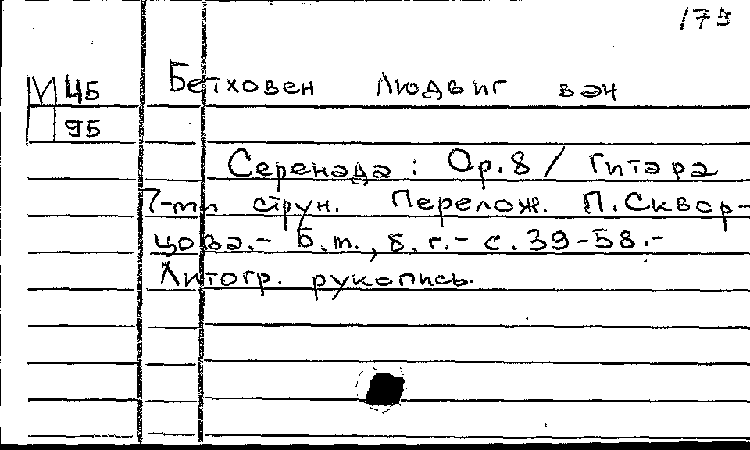 173
ЦБ Бетховен Людвиг ван
95
Серенада : Op.8 / Гитара
7-ми струн. Перелож. П.Сквор-
цова.- Б.м., б.г.- с.39-58.-
Литогр. рукопись.